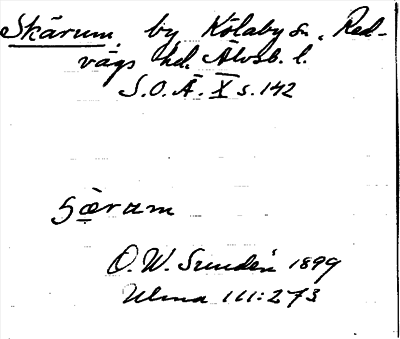 Skärum, by Kölaby sn, Red-
vägs hd. Älvsb. l.
S.O.Ä. X s. 142
særum
O. W. Sundén 1899
Ulma 111:273